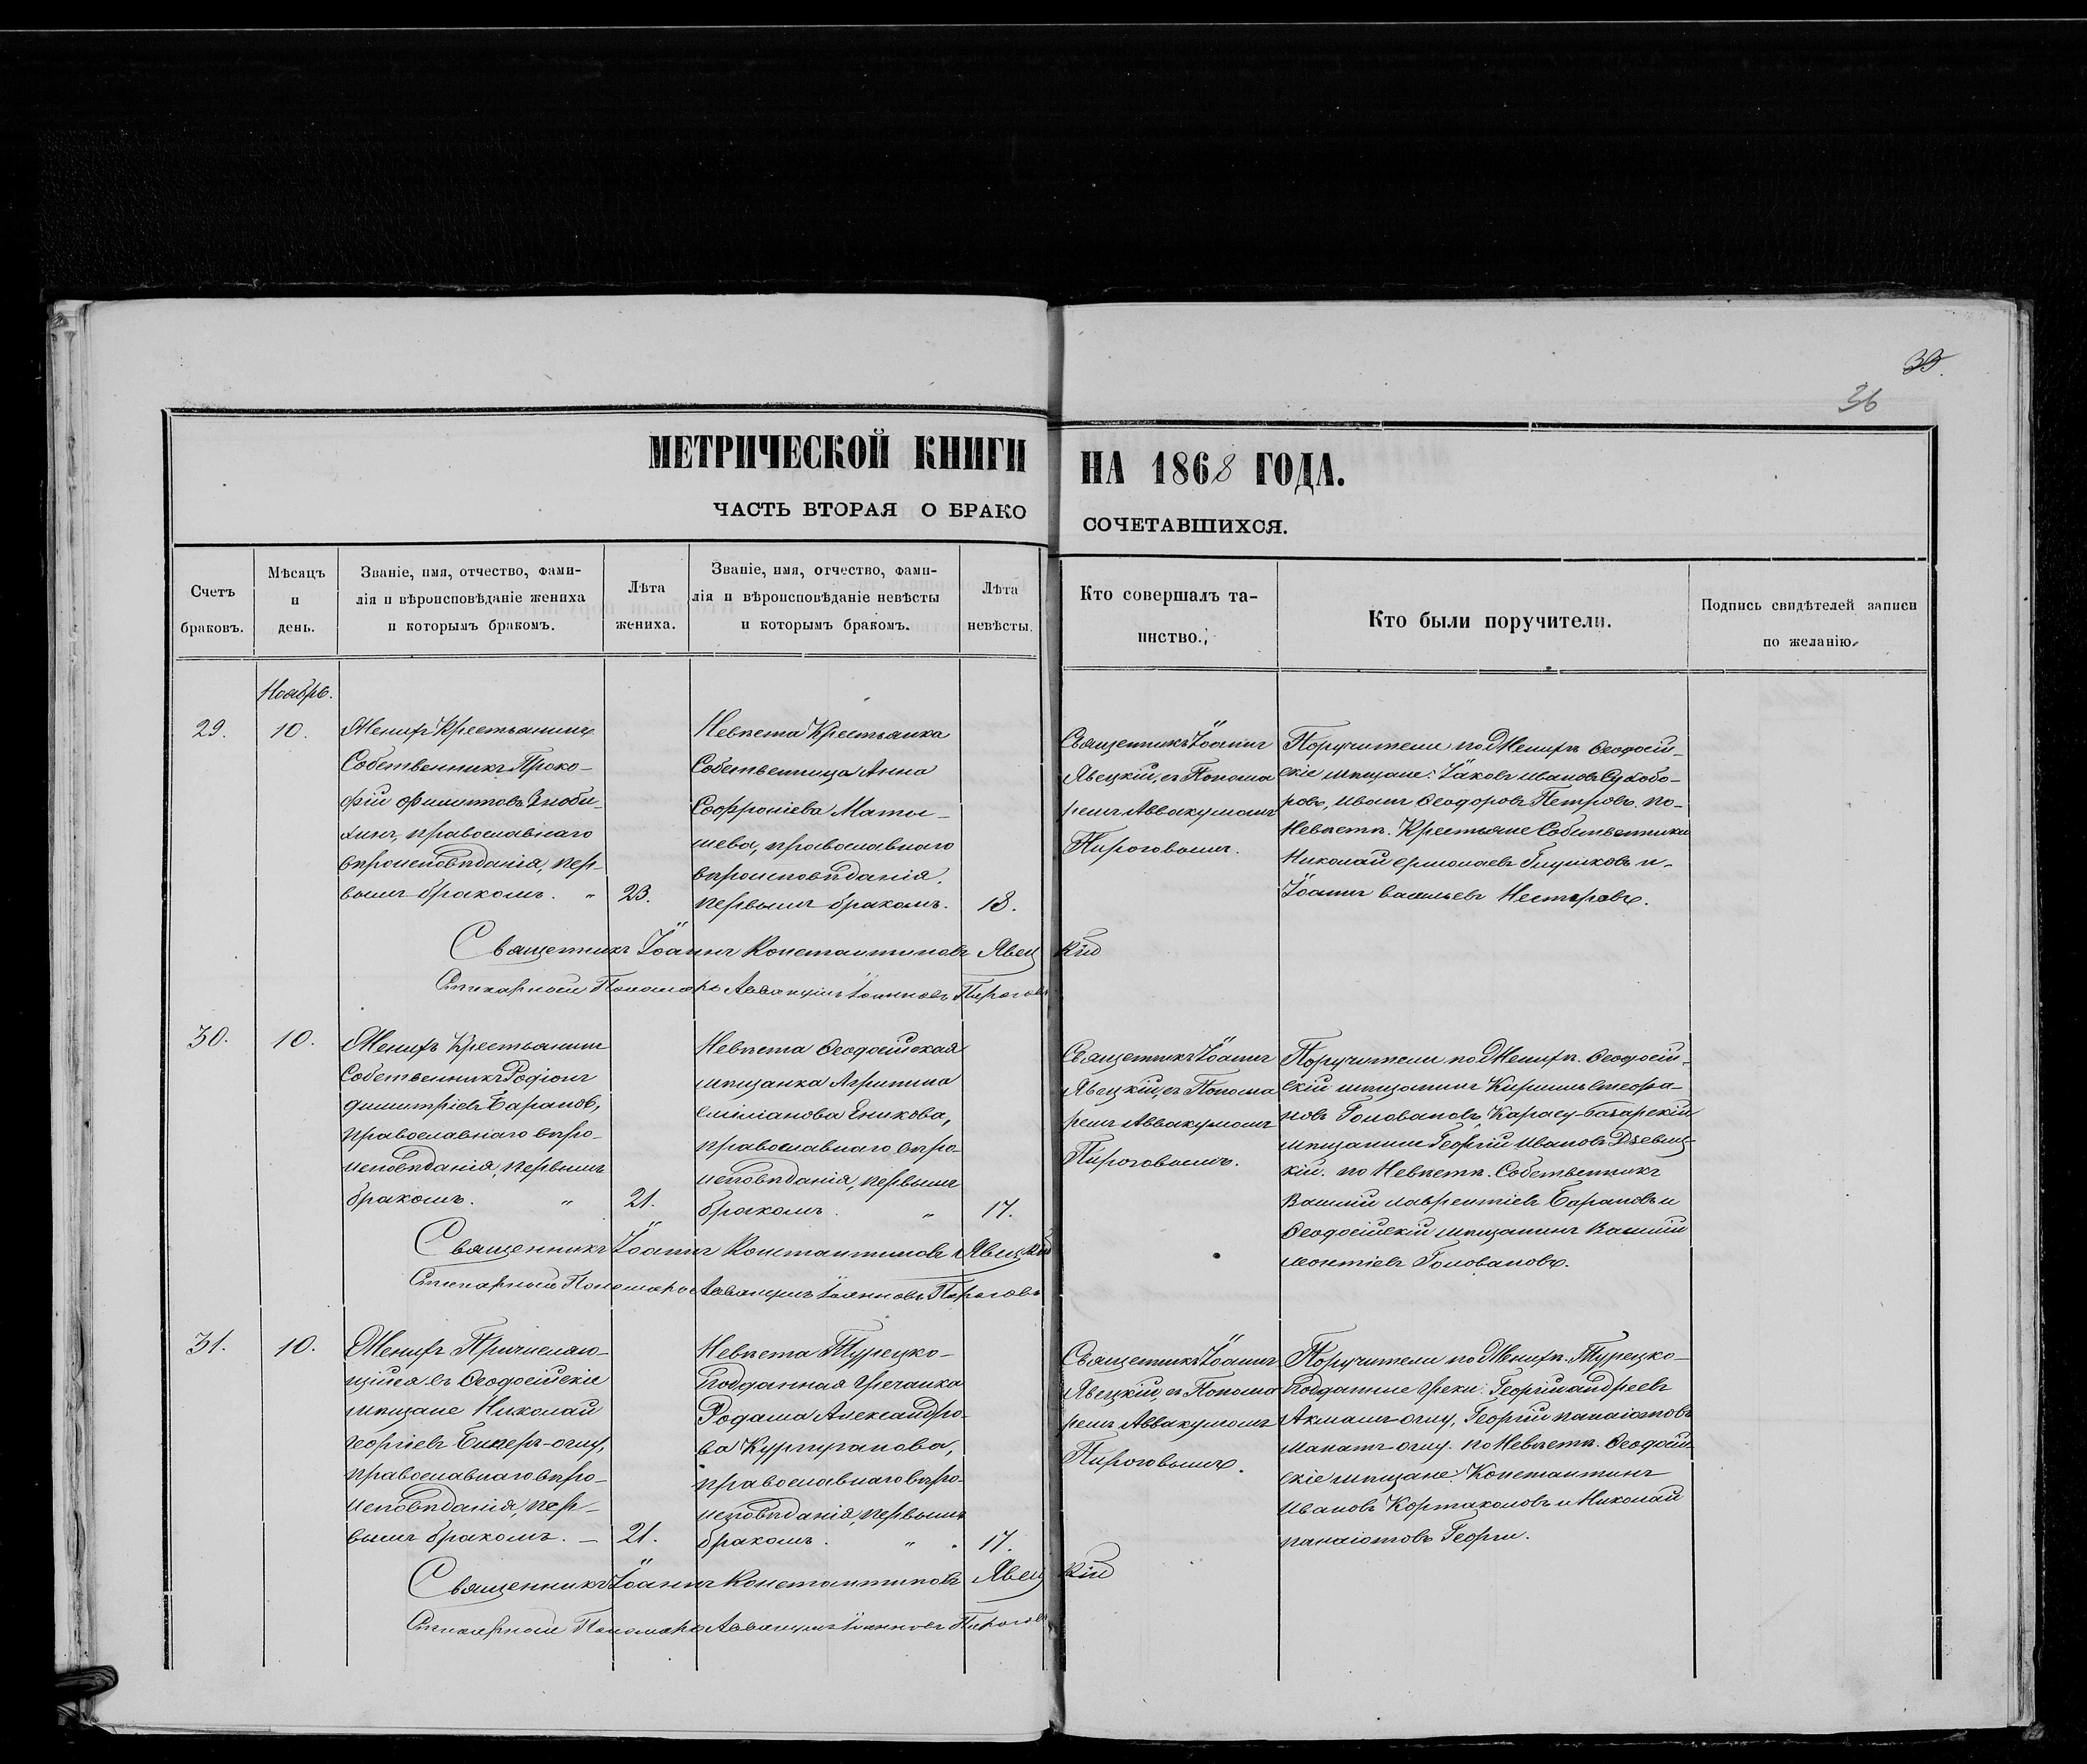 39.
36
МЕТРИЧЕСКОЙ КНИГИ НА 1868 ГОДА.
ЧАСТЬ ВТОРАЯ О БРАКОСОЧЕТАВШИХСЯ.
Счетъ браковъ.
Мѣсяцъ и день.
Званіе, имя, отчество, фами-
лія и вѣроисповѣданіе жениха
и которымъ бракомъ.
Лѣта жениха.
Званіе, имя, отчество, фами-
лія и вѣроисповѣданіе невѣсты
и которымъ бракомъ.
Лѣта невѣсты.
Кто совершалъ та-
инство.
Кто были поручители.
Подпись свидѣтелей записи
по желанію.
Ноабрь.
29.
10.
Женихъ Крестьянинъ
Собственникъ Проко-
фій
православнаго
вѣроисповѣданія, пер-
вымъ бракомъ. "
23.
Невѣста Крестьянка
Собственница Анна
Софроніева Маты-
шева, православнаго
вѣроисповѣданія,
первымъ бракомъ.
18.
Священникъ Іоаннъ
Явецкій, съ Понома
ремъ Аввакумомъ
Пироговымъ.
Поручители по Женихѣ Ѳеодосій-
скіе мѣщане: Іаковъ Ивановъ Сухобо-
ровъ, Иванъ Ѳеодоровъ Петровъ. по-
Невѣстѣ. Крестьяне Собственники
Николай Ермолаевъ и-
Іоаннъ Васильевъ Нестеровъ.
Священникъ Іоаннъ Константиновъ Явецкій
Стихарный Пономарь Аввакумъ Іоанновъ Пироговъ
30.
10.
Женихъ Крестьянинъ
Собственникъ Родіонъ
Димитріевъ Барановъ,
православнаго вѣро-
исповѣданія, первымъ
бракомъ. "
21.
Невѣста Ѳеодосійская
мѣщанка Агрипина
Еникова,
православнаго вѣро-
исповѣданія, первымъ
бракомъ. "
17.
Священникъ Іоаннъ
Явецкій, съ Понома
ремъ Аввакумомъ
Пироговымъ.
Поручители по Женихѣ. Ѳеодосій-
скій мѣщанинъ Кириллъ Стефа-
новъ Головановъ, Карасу-базарскій
мѣщанинъ Георгій Ивановъ
кій. по Невѣстѣ. Собственникъ
Василій Лаврентіевъ Барановъ и
Ѳеодосійскій мѣщанинъ Василій
Леонтіевъ Головановъ.
Священникъ Іоаннъ Константиновъ Явецкій
Стихарный Пономарь Аввакумъ Іоанновъ Пироговъ
31.
10.
Женихъ Причисляю-
щійся въ Ѳеодосійскіе
мѣщане Николай
Георгіевъ
православнаго вѣро-
исповѣданія, пер-
вымъ бракомъ. —
21.
Невѣста Турецко-
подданная Гречанка
Родама Александро-
ва
православнаго вѣро-
исповѣданія, первымъ
бракомъ. " "
17.
Священникъ Іоаннъ
Явецкій, съ Понома
ремъ Аввакумомъ
Пироговымъ.
Поручители по Женихѣ. Турецко-
подданные Греки: Георгій Андреевъ
Акманъ-оглу, Георгій Панаіотовъ
по Невѣстѣ. Ѳеодосій-
скіе мѣщане. Константинъ
Ивановъ и Николай
Панаіотовъ Георги.
Священникъ Іоаннъ Константиновъ Явецкій
Стихарный Пономарь Аввакумъ Іоанновъ Пироговъ